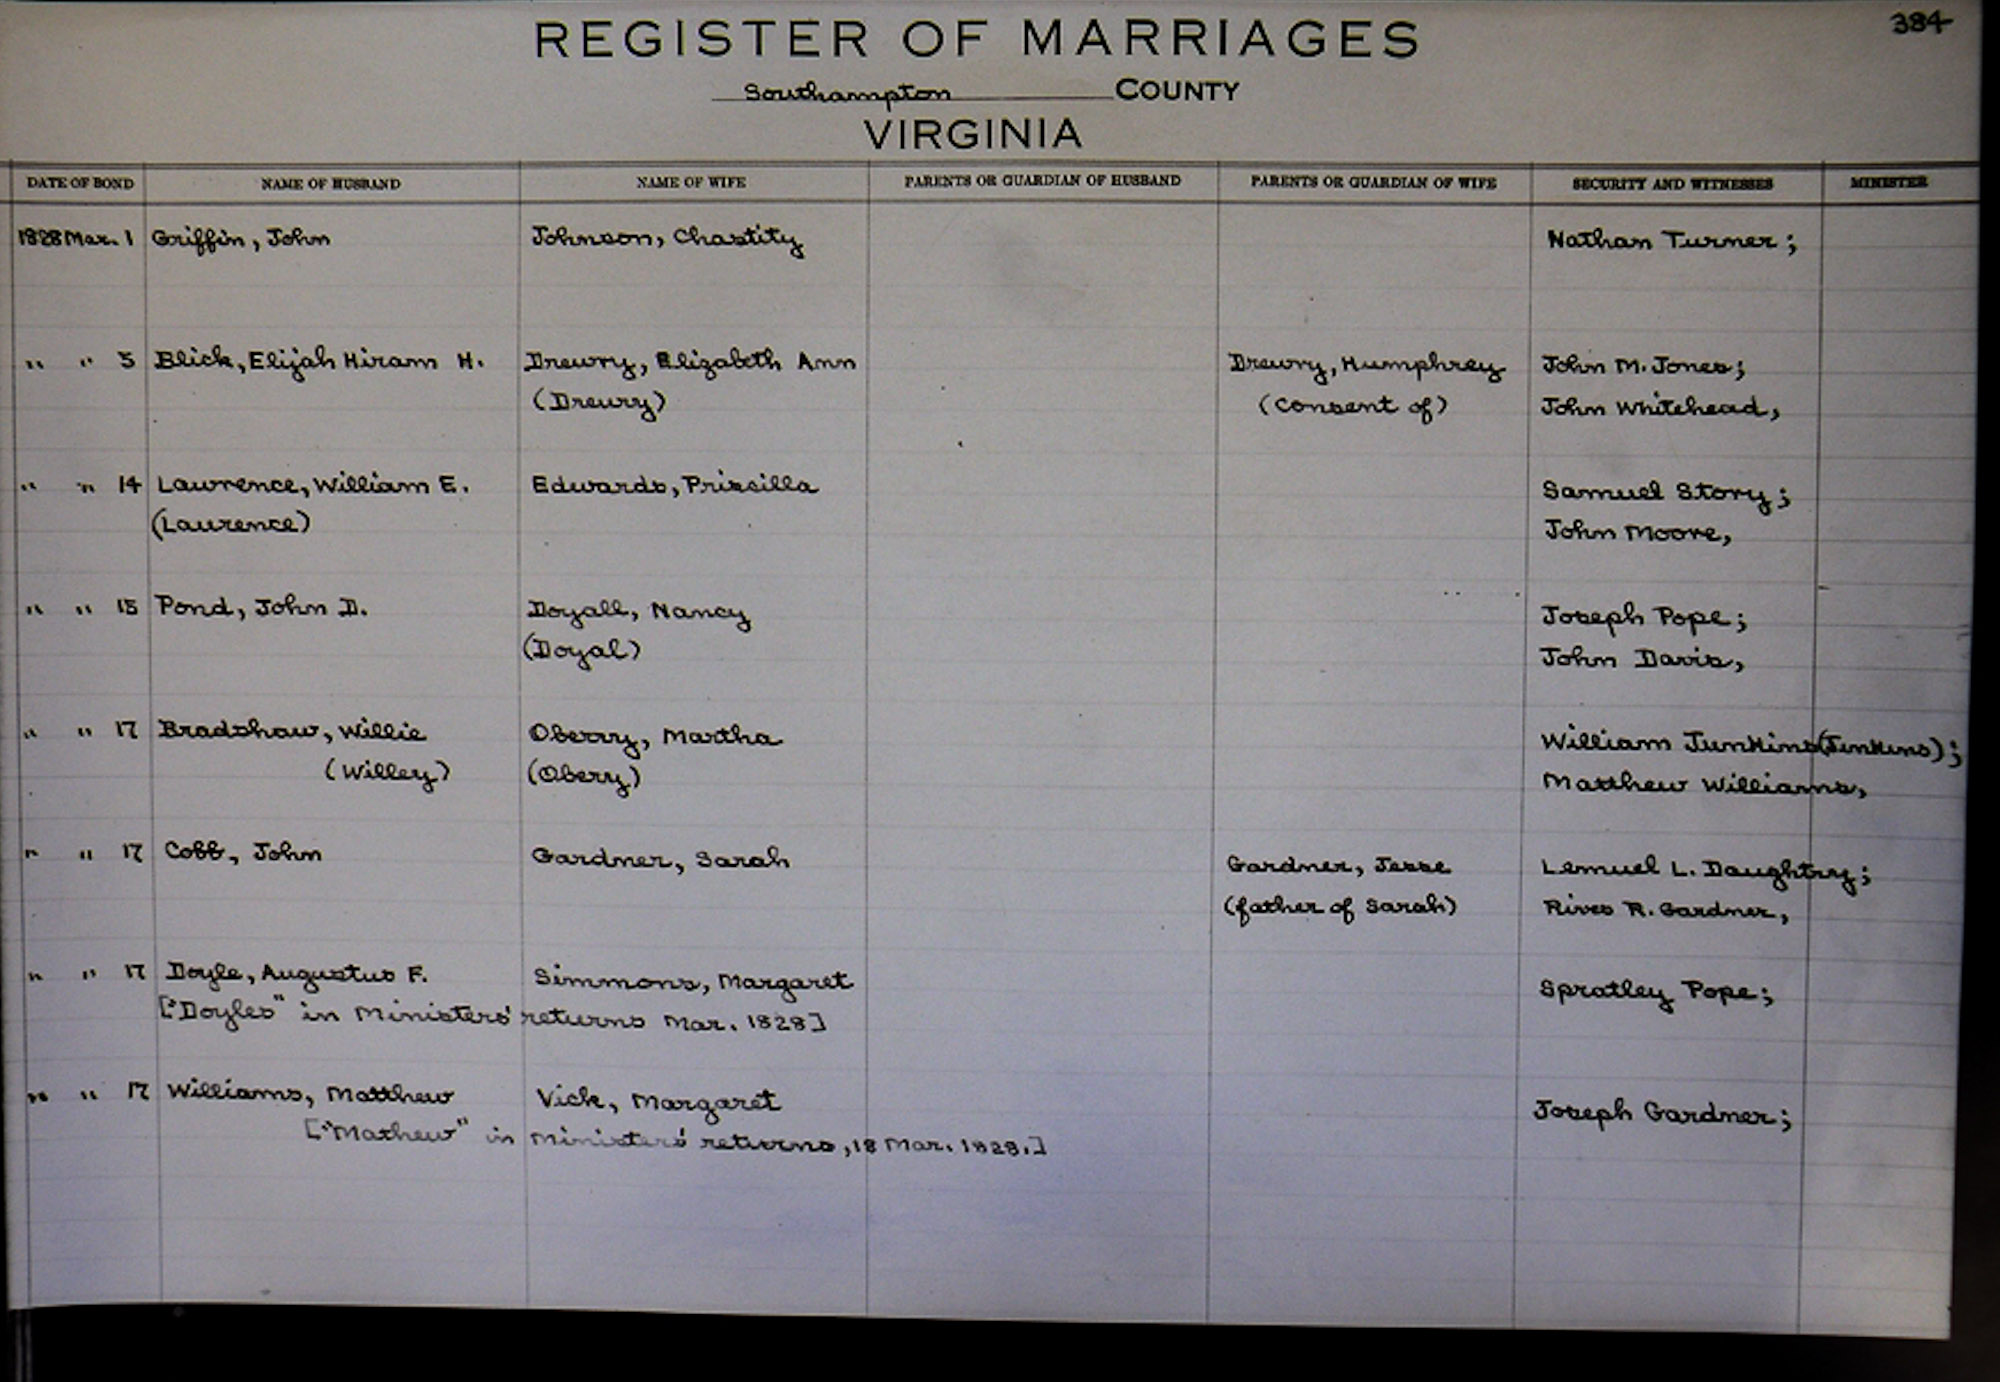 384
REGISTER OF MARRIAGES
Southampton COUNTY
VIRGINIA
DATE OF BOND NAME OF HUSBAND NAME OF WIFE PARENTS OR GUARDIAN OF HUSBAND PARENTS OR GUARDIAN OF WIFE SECURITY AND WITNESSES MINISTER
1828 Mar. 1 Griffin, John Johnson, Chastity Nathan Turner;
" " 5 Blick, Elijah Hiram H. Drewry, Elizabeth Ann Drewry, Humphrey John M. Jones;
(Dreury) (consent of) John Whitehead,
" " 14 Lawrence, William E. Edwards, Priscilla Samuel Story;
(Laurence) John Moore,
" " 15 Pond, John D. Doyall, Nancy Joseph Pope;
(Doyal) John Davis,
" " 17 Bradshaw, Willie Oberry, Martha William Junkins (Jinkins);
(Willey) (Obery) Matthew Williams,
" " 17 Cobb, John Gardner, Sarah Gardner, Jesse Lemuel L. Daughtry;
(father of Sarah) Rives R. Gardner,
" " 17 Doyle, Augustus F. Simmons, Margaret Spratley Pope;
["Doyles" in Ministers' returns Mar. 1828]
" " 17 Williams, Matthew Vick, Margaret Joseph Gardner;
["Mathew" in Ministers' returns, 18 Mar. 1828.]